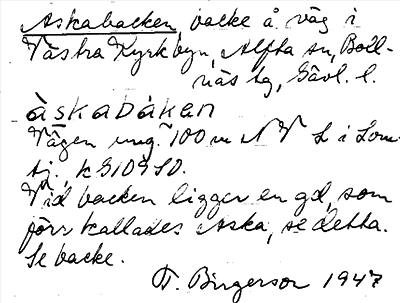 Askabacken, backe å väg i
Västra Kyrkbyn, Alfta sn, Boll-
näs tg, Gävl. l.
àskabàken
Vägen ung. 100 m NV L i Lom-
tj. k 9109 SO.
Vid backen ligger en gd, som
förr kallades Aska, se detta.
Se backe.
F. Birgerson 1947